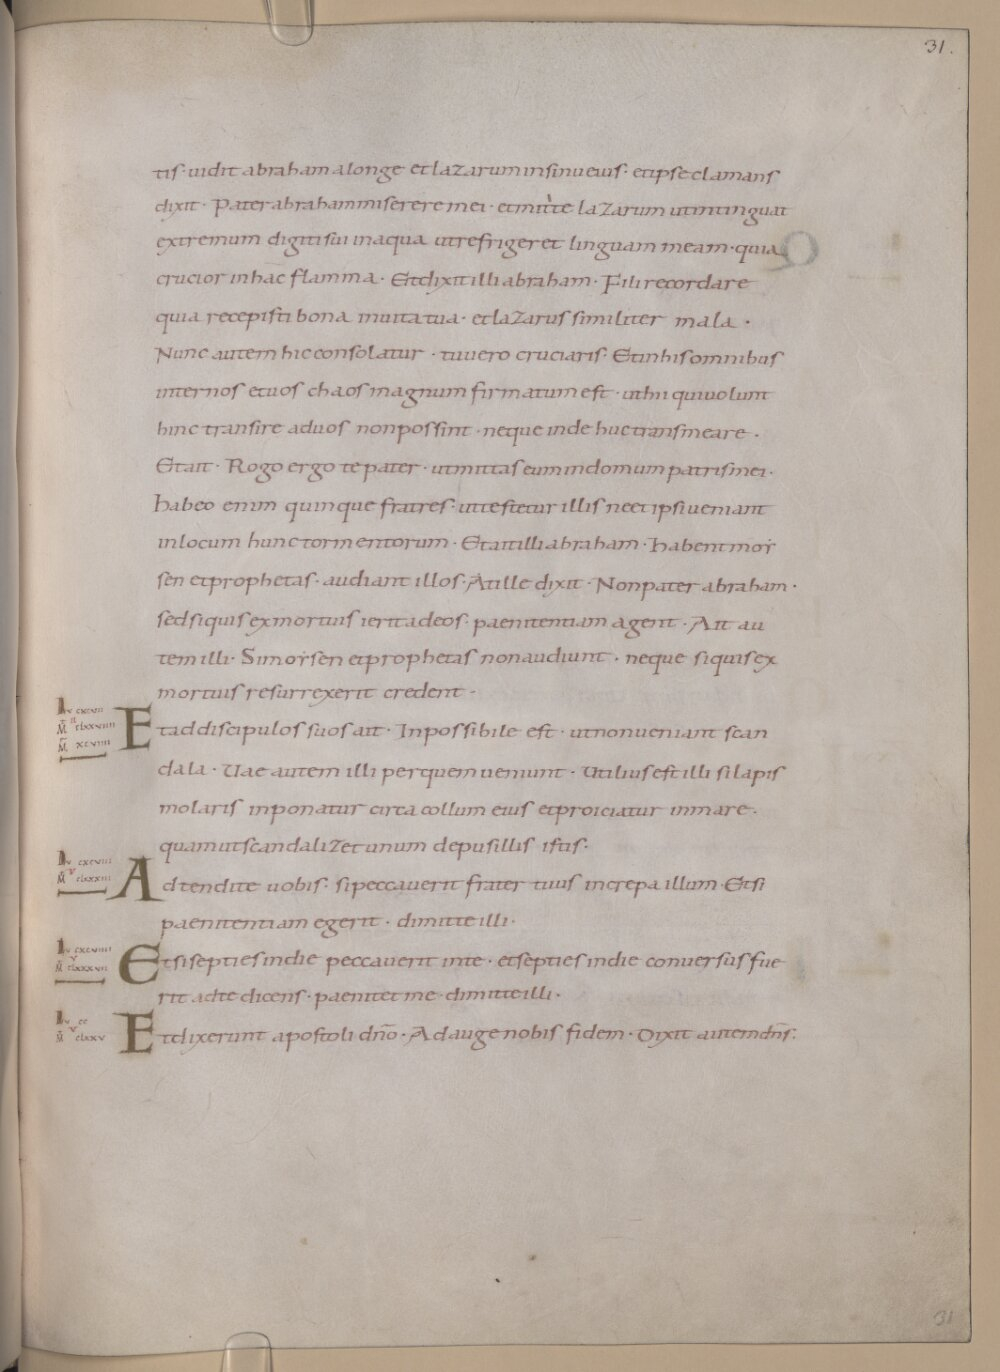 31.
tis· uidit abraham alonge et lazarum in sinu eius· et ipse clamans
dixit· Pater abraham miserere mei· et mitte lazarum ut intinguat
extremum digiti sui in aqua ut refrigeret linguam meam· quia
crucior in hac flamma· Et dixit illi abraham· Fili recordare
quia recepisti bona in uita tua· et lazarus similiter mala·
Nunc autem hic consolatur· tu uero cruciaris· Et in his omnibus
inter nos et uos chaos magnum firmatum est· ut hii qui uolunt
hinc transire ad uos non possint· neque inde huc transmeare·
Et ait· Rogo ergo te pater· ut mittas eum in domum patris mei·
habeo enim quinque fratres· ut testetur illis ne et ipsi ueniant
in locum hunc tormentorum· Et ait illi abraham· habent moy
sen et prophetas· audiant illos· At ille dixit· Non pater abraham·
sed si quis ex mortuis ierit ad eos· paenitentiam agent· Ait au
tem illi· Si moysen et prophetas non audiunt· neque si quis ex
mortuis resurrexerit credent·
Et ad discipulos suos ait· Inpossibile est· ut non ueniant scan
dala· Uae autem illi per quem ueniunt· Utilius est illi si lapis
molaris inponatur circa collum eius et proiciatur in mare·
quam ut scandalizet unum de pusillis istis·
Lu cxcviii
Adtendite uobis· si peccauerit frater tuus increpa illum· Et si
paenitentiam egerit· dimitte illi·
Lu cxcviiii
Et si septies in die peccauerit in te· et septies in die conuersus fue
rit ad te dicens· paenitet me· dimitte illi·
Lu cc
M clxxv
Et dixerunt apostoli dño· Adauge nobis fidem· Dixit autem dñs·
31